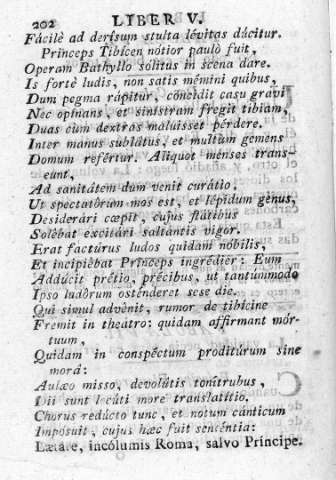 202 LIBER V.
Fácilè ad derísum stulta lévitas dúcitur.
Prínceps Tibícen nótior paulò fuit,
Operam Bathyllo sólitus in scena dare.
Is fortè ludis, non satis mémini quibus,
Dum pegma rápitur, cóncidit casu gravi
Nec opínans, et sinístram fregit tibiam,
Duas cùm dextras maluísset pérdere.
Inter manus sublátus, et multùm gemens
Domum refértur. Aliquot menses trans-
eunt,
Ad sanitátem dum venit curátio,
Ut spectatórum mos est, et lépidum genus,
Desiderári cœpit, cujus flátibus
Solébat excitári saltántis vigor.
Erat factúrus ludos quidam nóbilis,
Et incipiébat Prínceps ingrédier: Eum
Addúcit prétio, précibus, ut tantúmmodo
Ipso ludórum osténderet sese die.
Qui simul advénit, rumor de tibícine
Fremit in theatro: quidam affírmant mór-
tuum,
Quidam in conspéctum proditúrum sine
morâ:
Aulæo misso, devolútis tonítrubus,
Dii sunt locúti more translatítio.
Chorus redúcto tunc, et notum cánticum
Impósuit, cujus hæc fuit senténtia:
Lætare, incólumis Roma, salvo Príncipe.